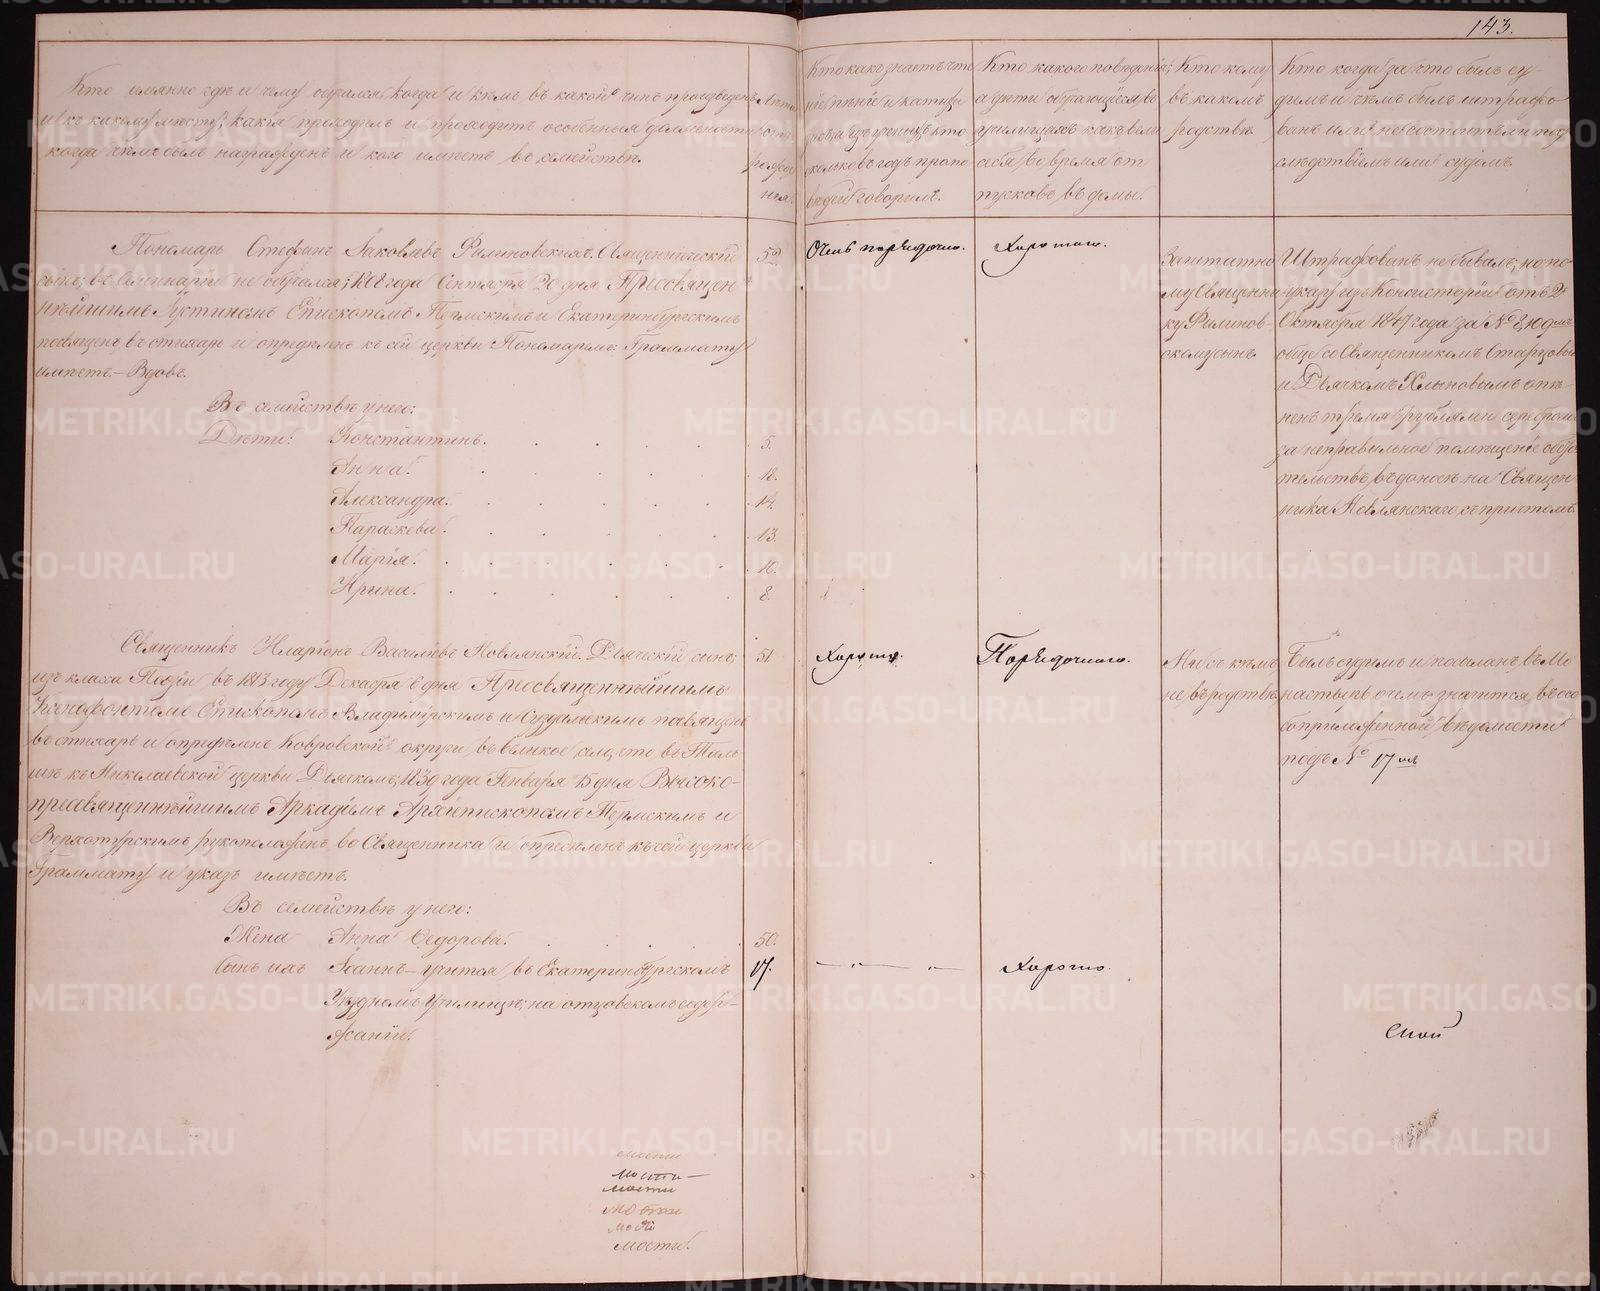 143.
Кто имянно гдѣ и чему обучался, когда и кѣмъ въ какой чинъ произведенъ
и къ какому мѣсту; какія проходилъ и проходитъ особенныя должности
когда чѣмъ былъ награжденъ и кого имѣетъ въ семействѣ.
Лѣта
отъ
рожде
нія.
Кто какъ знаетъ чте
ніе, пѣніе и катихи
зисъ изъ ученыхъ кто
сколько въ годъ пропо
вѣдей говорилъ.
Кто какого поведенія;
а дѣти обучающіяся въ
училищахъ какъ вели
себя, во время от
пусковъ въ домы.
Кто кому
въ какомъ
родствѣ
Кто когда за что былъ су-
димъ и чѣмъ былъ штрафо
ванъ или не состоитъ ли подъ
слѣдствіемъ или судомъ.
Пономарь Стефанъ Іаковлевъ Филиновскихъ. Священническій
сынъ; въ Семинаріи не обучался; 1808 года Сентября 20 дня Преосвящен
нѣйшимъ Іустиномъ Епископомъ Пермскимъ и Екатеринбургскимъ
посвященъ въ стихарь и опредѣленъ къ сей церкви Пономаремъ. Граммату
имѣетъ. – Вдовъ.
Въ семействѣ у него:
Дѣти: Константинъ. 5.
Анна. 18.
Александра. 14.
Параскева. 13.
Марія. 10.
Ирина. 8.
Очень порядочно.
Хорошаго.
Заштатно
му Священни
ку Филинов-
скому сынъ.
Штрафованъ не бывалъ; но по
указу изъ Консисторіи отъ 2
Октября 1847 года за №
обще со Священникомъ Старцовымъ
и Дьячкомъ Хлыновымъ оштраф
ненъ тремя рублями серебромъ
за неправильное помѣщеніе обст
тельствъ въ доносъ на Священ
ника Новлянскаго съ причтомъ.
Священникъ Иларіонъ Василіевъ Новлянскій. Дьяческій сынъ;
изъ класса Поэзіи въ 1813 году Декабря 6 дня Преосвященнѣйшимъ
Ксенофонтомъ Епископомъ Владимірскимъ и Суздальскимъ посвященъ
въ стихарь и опредѣленъ Ковровской округи въ великое село, что въ Талы
шѣ къ Николаевской церкви Дьячкомъ; 1830 года Генваря 15 дня Высоко-
преосвященнѣйшимъ Аркадіемъ Архіепископомъ Пермскимъ и
Верхотурскимъ рукоположенъ во Священника и опредѣленъ къ сей церкви
Граммату и указъ имѣетъ.
51.
Хорошо.
Порядочнаго.
Ни съ кѣмъ
не въ родствѣ
Былъ судимъ и посыланъ въ Мо
настырь о чемъ значится въ осо
боприложенной вѣдомости
подъ № 17 мъ
Въ семействѣ у него:
Жена Анна Ѳедорова. 50.
Сынъ ихъ Іоаннъ – учится въ Екатеринбургскомъ 17.
Уѣздномъ Училищѣ; на отцовскомъ содер-
жаніи.
Хорошо.
мости
мости
мости
мости.